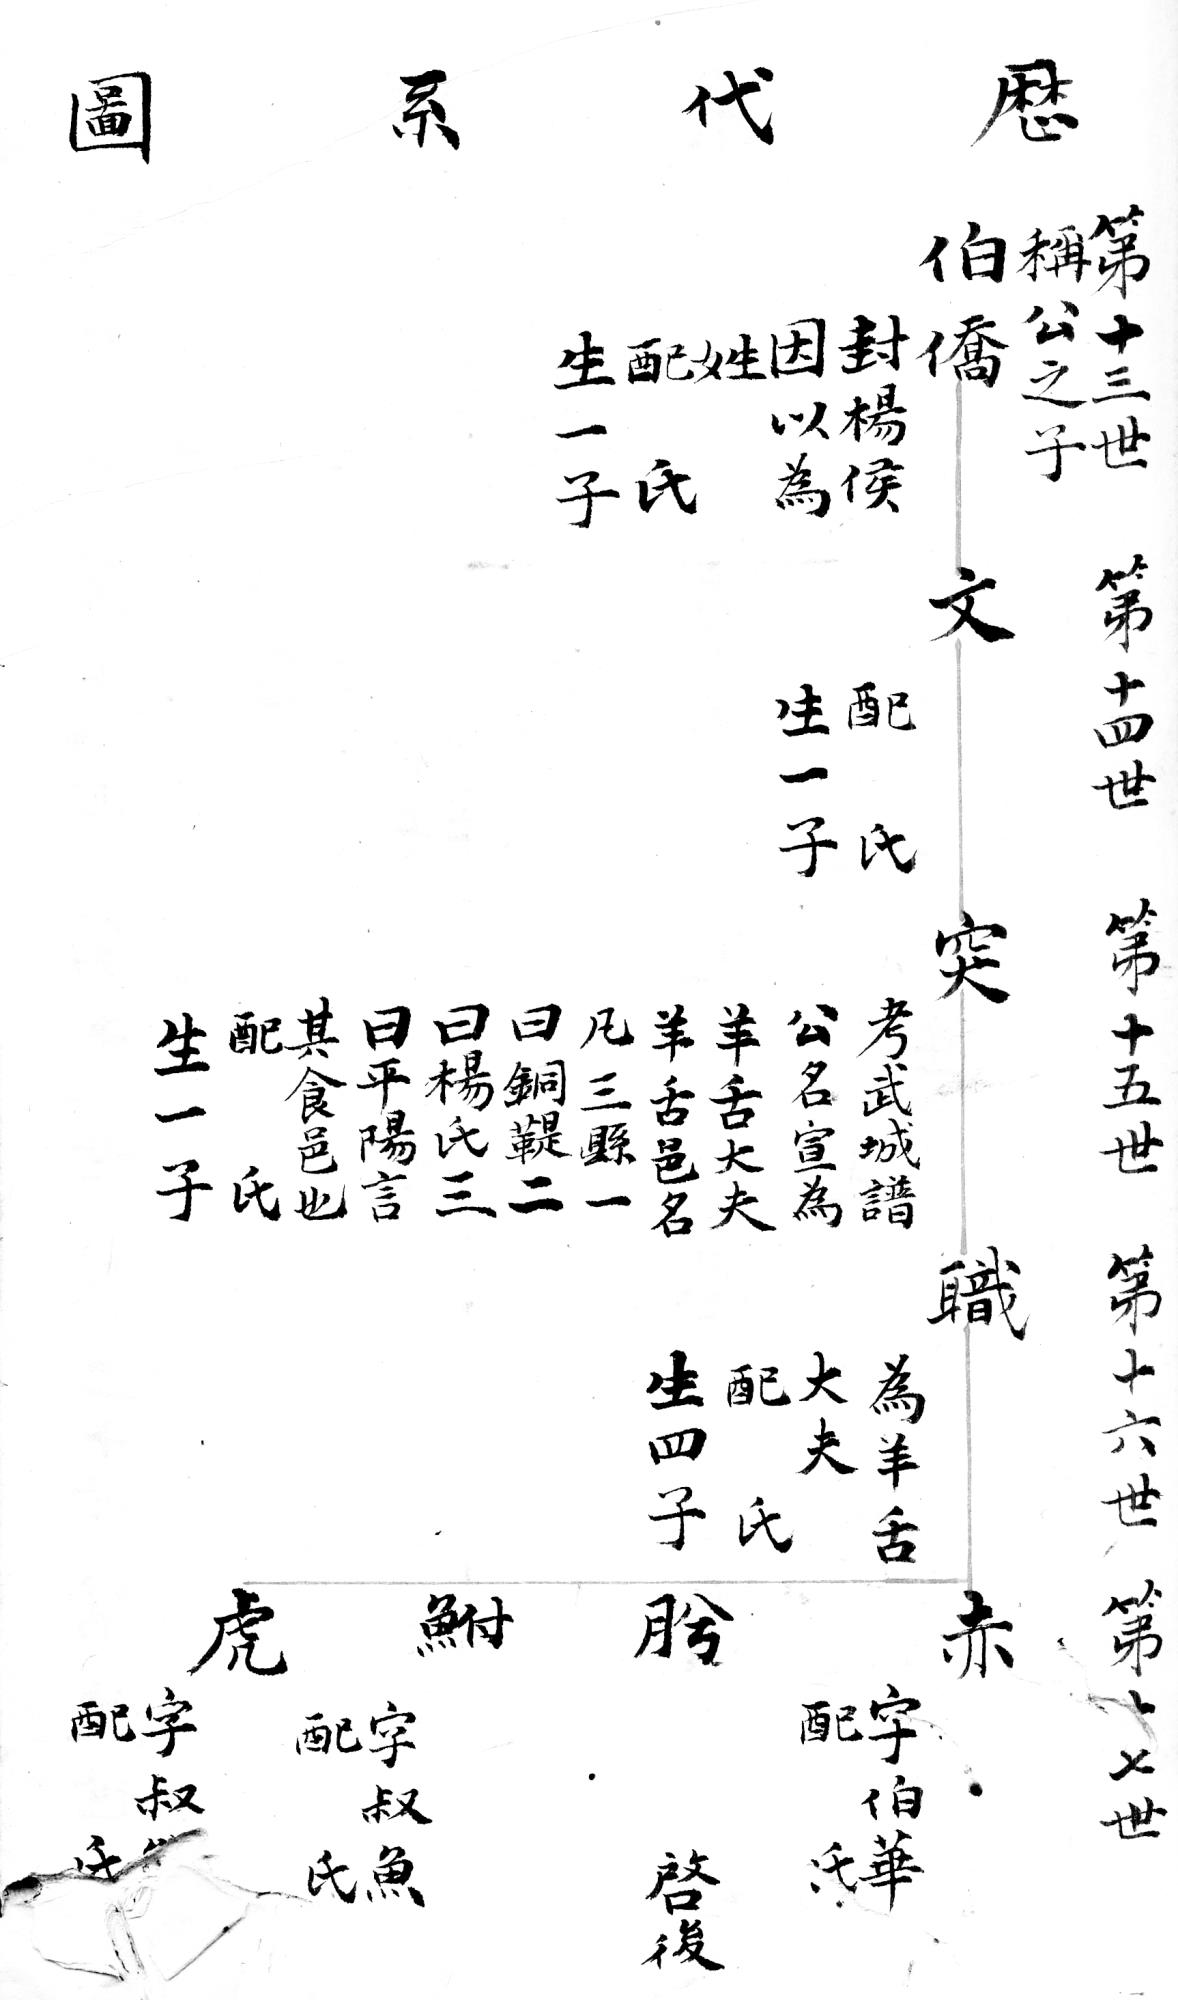 歷代系圖
第十三世
稱公之子
伯僑
封楊侯
因以為
姓
配 氏
生一子
第十四世
文
配 氏
生一子
第十五世
突
考武城譜
公名宣為
羊舌大夫
羊舌邑名
凡三縣一
曰銅鞮二
曰楊氏三
曰平陽言
其食邑也
配 氏
生一子
第十六世
職
為羊舌
大夫
配 氏
生四子
第十七世
赤
字伯華
配 氏
肸
啓後
鮒
字叔魚
配 氏
虎
字叔
配 氏